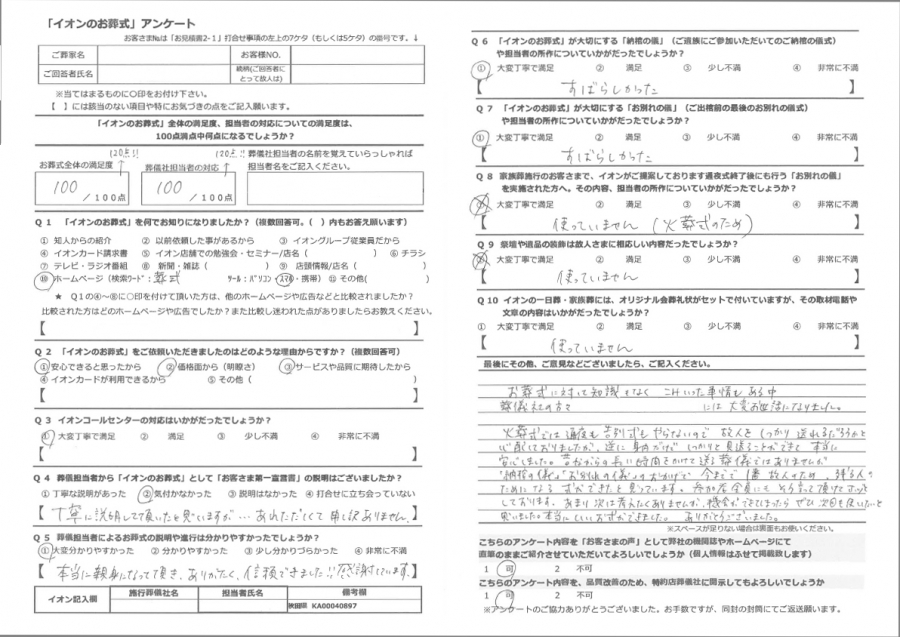 「イオンのお葬式」アンケート
お客さま№は「お見積書2-1」打合せ事項の左上の7ケタ（もしくは5ケタ）の番号です。↓
ご葬家名 お客様NO.
ご回答者氏名 続柄(ご回答者にとって故人は)
※当てはまるものに〇印をお付け下さい。
【 】には該当のない項目や特にお気づきの点をご記入願います。
「イオンのお葬式」全体の満足度、担当者の対応についての満足度は、
100点満点中何点になるでしょうか？
120点!! 120点!! 葬儀社担当者の名前を覚えていらっしゃれば
お葬式全体の満足度 葬儀社担当者の対応 担当者名をご記入ください。
100 ／100点 100 ／100点
Q１ 「イオンのお葬式」を何でお知りになりましたか？（複数回答可。（ ）内もお答え願います）
① 知人からの紹介 ② 以前依頼した事があるから ③ イオングループ従業員だから
④ イオンカード請求書 ⑤ イオン店舗での勉強会・セミナー/店名（ ） ⑥ チラシ
⑦ テレビ・ラジオ番組 ⑧ 新聞・雑誌（ ） ⑨ 店頭情報/店名（ ）
⑩ ホームページ（検索ワード：葬式 ツール：パソコン・スマホ・携帯） ⑪ その他( )
★ Q１の④～⑩に〇印を付けて頂いた方は、他のホームページや広告などと比較されましたか？
比較された方はどのホームページや広告でしたか？また比較し迷われた点がありましたらお教えください。
【 】
Q２ 「イオンのお葬式」をご依頼いただきましたのはどのような理由からですか？（複数回答可）
① 安心できると思ったから ② 価格面から（明瞭さ） ③ サービスや品質に期待したから
④ イオンカードが利用できるから ⑤ その他（ ）
【 】
Q３ イオンコールセンターの対応はいかがだったでしょうか？
① 大変丁寧で満足 ② 満足 ③ 少し不満 ④ 非常に不満
【 】
Q４ 葬儀担当者から「イオンのお葬式」として「お客さま第一宣言書」の説明はございましたか？
① 丁寧な説明があった ② 気付かなかった ③ 説明はなかった ④ 打合せに立ち会っていない
【丁寧に説明して頂いたと思っていますが… あれただしくて申し訳ありません。】
Q５ 葬儀担当者によるお葬式の説明や進行は分かりやすかったでしょうか？
① 大変分かりやすかった ② 分かりやすかった ③ 少し分かりづらかった ④ 非常に不満
【本当に親身になって頂き、ありがたく、信頼できました!!感謝しています。】
イオン記入欄 施行葬儀社名 担当者氏名 備考欄
秋田県 KA00040897
Q６ 「イオンのお葬式」が大切にする「納棺の儀」（ご遺族にご参加いただいてのご納棺の儀式）
や担当者の所作についていかがだったでしょうか？
① 大変丁寧で満足 ② 満足 ③ 少し不満 ④ 非常に不満
【すばらしかった】
Q７ 「イオンのお葬式」が大切にする「お別れの儀」（ご出棺前の最後のお別れの儀式）
や担当者の所作についていかがだったでしょうか？
① 大変丁寧で満足 ② 満足 ③ 少し不満 ④ 非常に不満
【すばらしかった】
Q８ 家族葬施行のお客さまで、イオンがご提案しております通夜式終了後にも行う「お別れの儀」
を実施された方へ。その内容、担当者の所作についていかがだったでしょうか？
① 大変丁寧で満足 ② 満足 ③ 少し不満 ④ 非常に不満
【使っていません（火葬式のため）】
Q９ 祭壇や遺品の装飾は故人さまに相応しい内容だったでしょうか？
① 大変丁寧で満足 ② 満足 ③ 少し不満 ④ 非常に不満
【使っていません】
Q10 イオンの一日葬・家族葬には、オリジナル会葬礼状がセットで付いていますが、その取材電話や
文章の内容はいかがだったでしょうか？
① 大変丁寧で満足 ② 満足 ③ 少し不満 ④ 非常に不満
【使っていません】
最後にその他、ご意見などございましたら、ご記入ください。
お葬式に対して知識もなく こみいった事情もある中
葬儀社の方々 には 大変お世話になりました。
火葬式では通夜も告別式もやらないので 故人をしっかり送れるだろうかと
心配しておりましたが、逆に身内だけで しっかりと見送ることができて 本当に
安心しました。昔ながらの長い時間をかけて送る葬儀ではありませんが
「納棺の儀」「お別れの儀」のおかげで、今までで1番 故人のため、残る人の
ためになる 式ができたと思っています。参加者全員にも そう言って頂けてホッと
しております。あまり次は考えたくありませんが、機会ができてしまったら ぜひ次回も使いたいと
思いました。本当にいいお式ができました。 ありがとうございました。
※スペースが足りない場合は裏面もお使いください。
こちらのアンケート内容を「お客さまの声」として弊社の機関誌やホームページにて
直筆のままご紹介させていただいてよろしいでしょうか（個人情報はふせて掲載致します）
1 可 2 不可
こちらのアンケート内容を、品質改善のため、特約店葬儀社に開示してもよろしいでしょうか
1 可 2 不可
※アンケートのご協力ありがとうございました。お手数ですが、同封の封筒にてご返送願います。